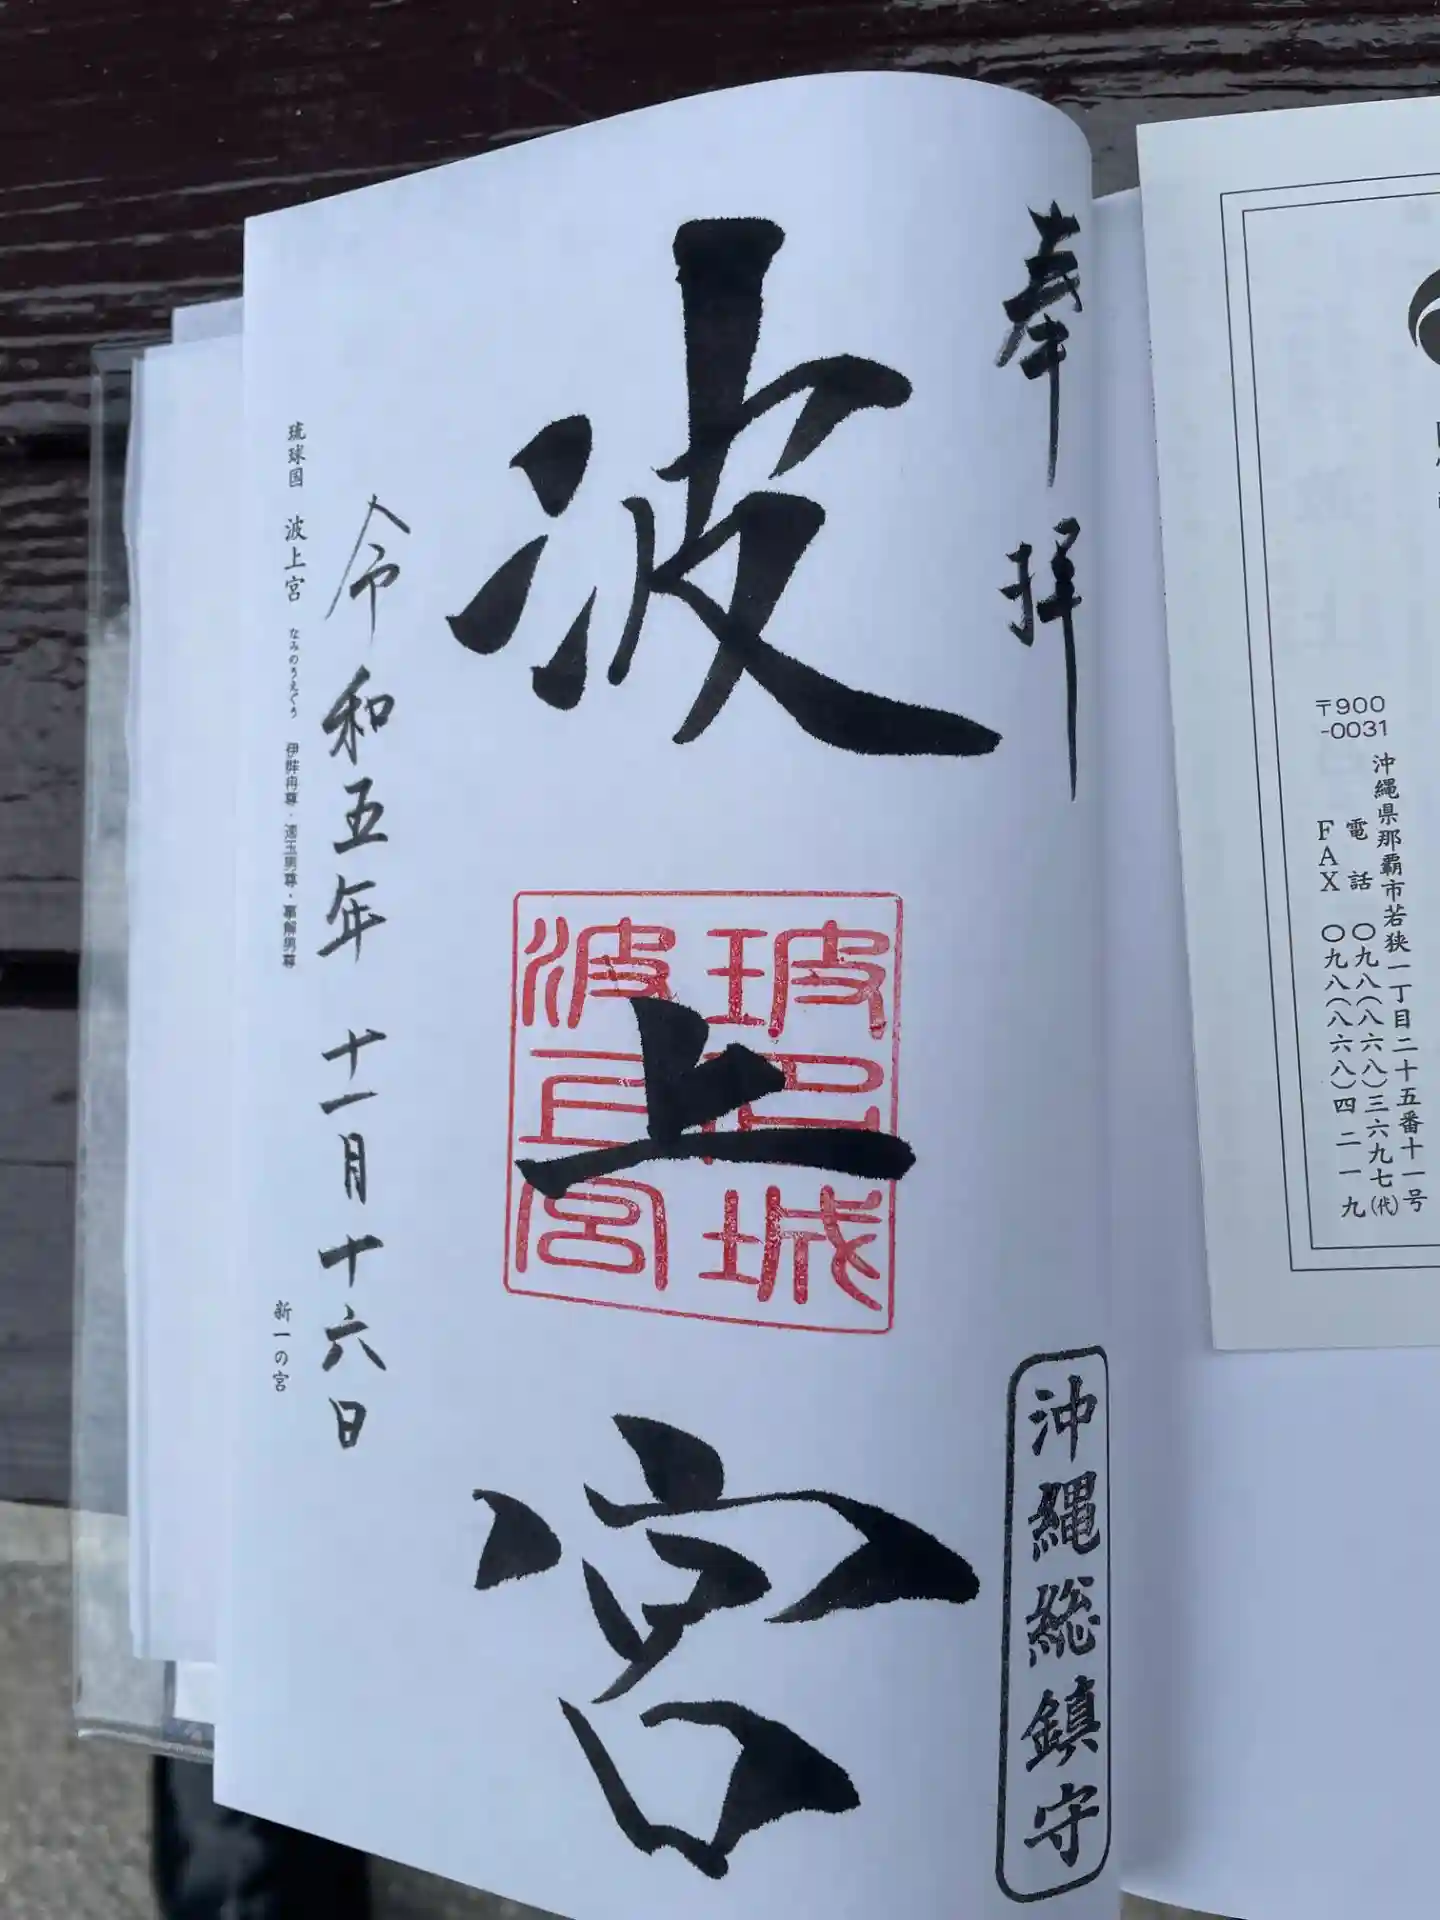 〒900
-0031
沖縄県那覇市若狭一丁目二十五番十一号
電話 〇九八(八六八)三六九七(代)
FAX 〇九八(八六八)四二一九
奉拝
沖縄総鎮守
波上宮
玻名城
波上宮
令和五年 十一月十六日
琉球国 波上宮 なみのうえぐう 伊弉冉尊・速玉男尊・事解男尊 新一の宮